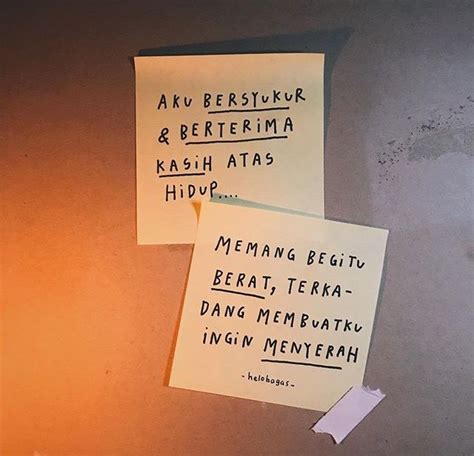 AKU BERSYUKUR
& BERTERIMA
KASIH ATAS
HIDUP....
MEMANG BEGITU
BERAT, TERKA-
DANG MEMBUATKU
INGIN MENYERAH
-helobagas-